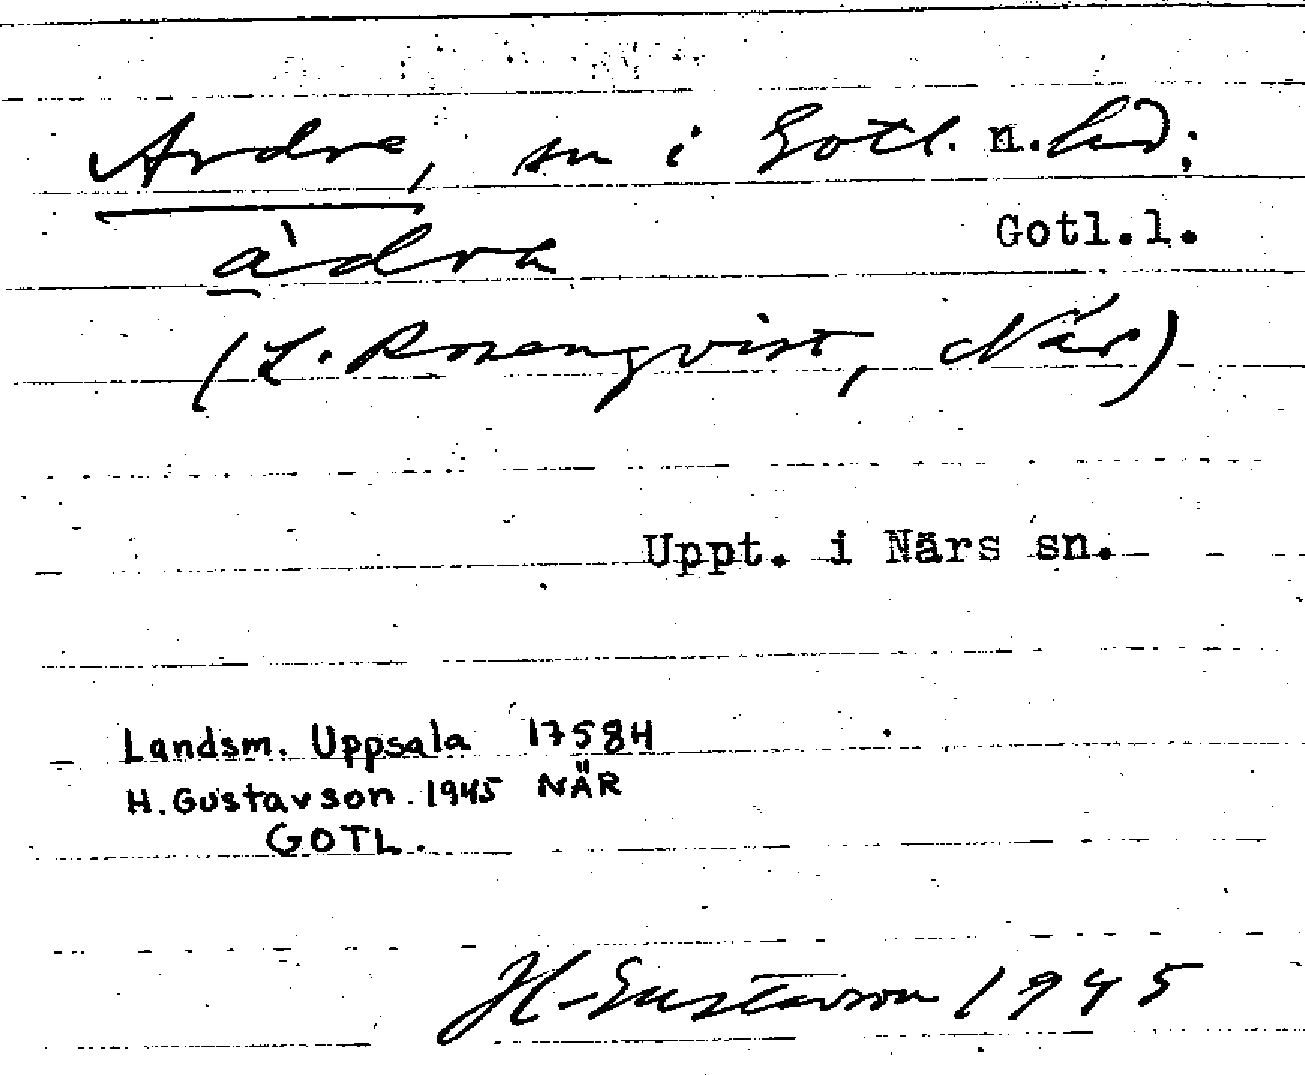 Ardre, sn i Gotl. n. hd;
Gotl.l.
a̲̍dra
(L. Rosenqvist, När)
Uppt. i Närs sn.
Landsm. Uppsala 17584
H. Gustavson. 1945 NÄR
GOTL.
H. Gustavson 1945